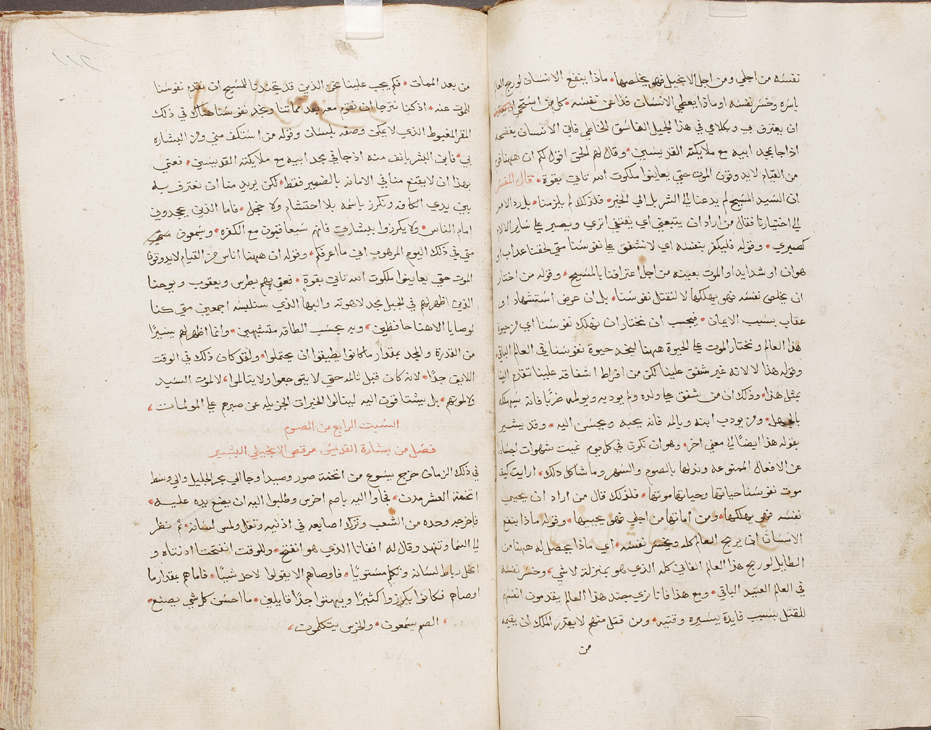 نفسه من اجلي ومن اجل الانجيل فهو يخلصها • ماذا ينفع الانسان لو ربح العالم
باسره وخسر نفسه او ماذا يعطي الانسان فداً عن نفسه • كل من استحى
ان يعترف بي وبكلامي في هذا الجيل الفاسق الخاطي فابن الانسان يفضحه
اذا جا بمجد ابيه مع ملايكته القديسين • وقال لهم الحق اقول لكم ان ههنا قوم
من القيام لا يدوقون الموت حتى يعاينوا ملكوت الله تاتي بقوة • قال المفسر
ان السيد المسيح لم يدعنا الى الشر بل الى الخير • فلذلك لم يلزمنا • بل رد الامر
الى اختيارنا فقال من اراد ان يتبعني اي يقتفي اثري ويصبر على ساير الالام
كصبري • وقوله فليكفر بنفسه اي لا نشفق على نفوسنا متى لحقنا عذاب او
هوان او شدايد او الموت بعينه من اجل اعترافنا بالمسيح • وقوله من اختار
ان يخلص نفسه فهو يهلكها لا لنقتل نفوسنا • بل ان عرض استشهاد او
عقاب بسبب الايمان • فيجب ان نختار ان نهلك نفوسنا اي
هذا العالم ونختار الموت على الحيوة ههنا لنجد حيوة نفوسنا في العالم الباقي
وقوله هذا لا لانه غير شفق علينا لكن من افراط اشفاقه علينا تقدم الينا
بمثل هذا • وذلك ان من شفق على ولده ولم يوديه ويولمه ضربًا فانه سيهلكه
بالجهل • ومن يودب ابنه ويالمه فانه يحبه ويحسن اليه • وقد يشير
بقوله هذا ايضًا الى معنى اخر • وهو ان نكون في كل يوم نميت شهوات اجسادنا
عن الافعال الممنوعه ونذلها بالصوم والسهر وما شاكل ذلك • ارايت كيف
موت نفوسنا حياتها وحياتها موتها • فلذلك قال من اراد ان يحيي
نفسه فهو يهلكها • ومن اماتها من اجلي فهو يحييها • وقوله ماذا ينفع
الانسان ان يربح العالم كله ويخسر نفسه • اي ماذا يحصل له ههنا من
الطايل لو ربح هذا العالم الفاني كله الذي هو بمنزلة لا شي • وخسر نفسه
في العالم العتيد الباقي • ومع هذا فانا نرى جند هذا العالم يقدمون انفسهم
للقتل بسبب فايدة يسيره وقتيه • ومن قتل منهم لا يقدر الملك ان يقيمه
من
من بعد الممات • فكم يجب علينا نحن الذين قد للمسيح ان نقدم نفوسنا
الموت عنه • اذ كنا نترجا ان نقوم معه بعد مماتنا ونجد نفوسنا هناك في ذلك
المقر المغبوط الذي لا يمكن وصفه بلسان وقوله من استنكف مني ومن البشاره
بي • فابن البشر يانف منه اذا جا في مجد ابيه مع ملايكته القديسين • فعنى
بهذا ان لا يقنع منا في الامانه بالضمير فقط • لكن يريد منا ان نعترف به
بين يدي الكافه ونكرز باسمه بلا احتشام ولا خجل • فاما الذين يجحدوني
امام الناس • ولا يكرزوا ببشارتي فانهم سيعاقبون مع الكفره • ويسمعون
مني في ذلك اليوم المرهوب اني ما اعرفكم • وقوله ان ههنا اناس من القيام لا يدوقون
الموت حتى يعاينوا ملكوت الله تاتي بقوة • فعنى بهم بطرس ويعقوب ويوحنا
الذين اظهر لهم في الجبل مجد لاهوته والبها الذي سنلبسه اجمعين متى كنا
لوصايا الاهنا حافظين • وبه بحسب الطاقه متشبهين • وانما اظهر لهم يسيرًا
من القدرة والمجد بمقدار ما كانوا يطيقوا ان يحتملوا • ولقد كان ذلك في الوقت
اللايق جدًا • لانه كان قبل تالمه حتى لا يتوجعوا ولا يتالموا • لا لموت السيد
ولا لموتهم • بل يشتاقون اليه لينالوا الخيرات الجزيله عن صبرهم على المولمات •
السبت الرابع من الصوم
فصل من بشارة القديس مرقص الانجيلي البشير
في ذلك الزمان خرج يسوع من تخمة صور وصيدا وجا الى بحر الجليل والى وسط
تخمة العشر مدن • فجاوا اليه باصم اخرس وطلبوا اليه ان يضع يده عليه •
فاخرجه وحده من الشعب وترك اصابعه في اذنيه وتفل ولمس لسانه • ثم نظر
الى السما وتنهد وقال له افثاتا الذي هو انفتح • وللوقت انفتحت اذناه و
انحل رباط لسانه وتكلم مستويًا • فاوصاهم الا يقولوا لاحد شيًا • فاما هم بمقدار ما
اوصاهم فكانوا يكرزوا كثيرًا ويبهتوا جدًا قايلين • ما احسن كل شي يصنع •
الصم يسمعون • والخرس يتكلمون •